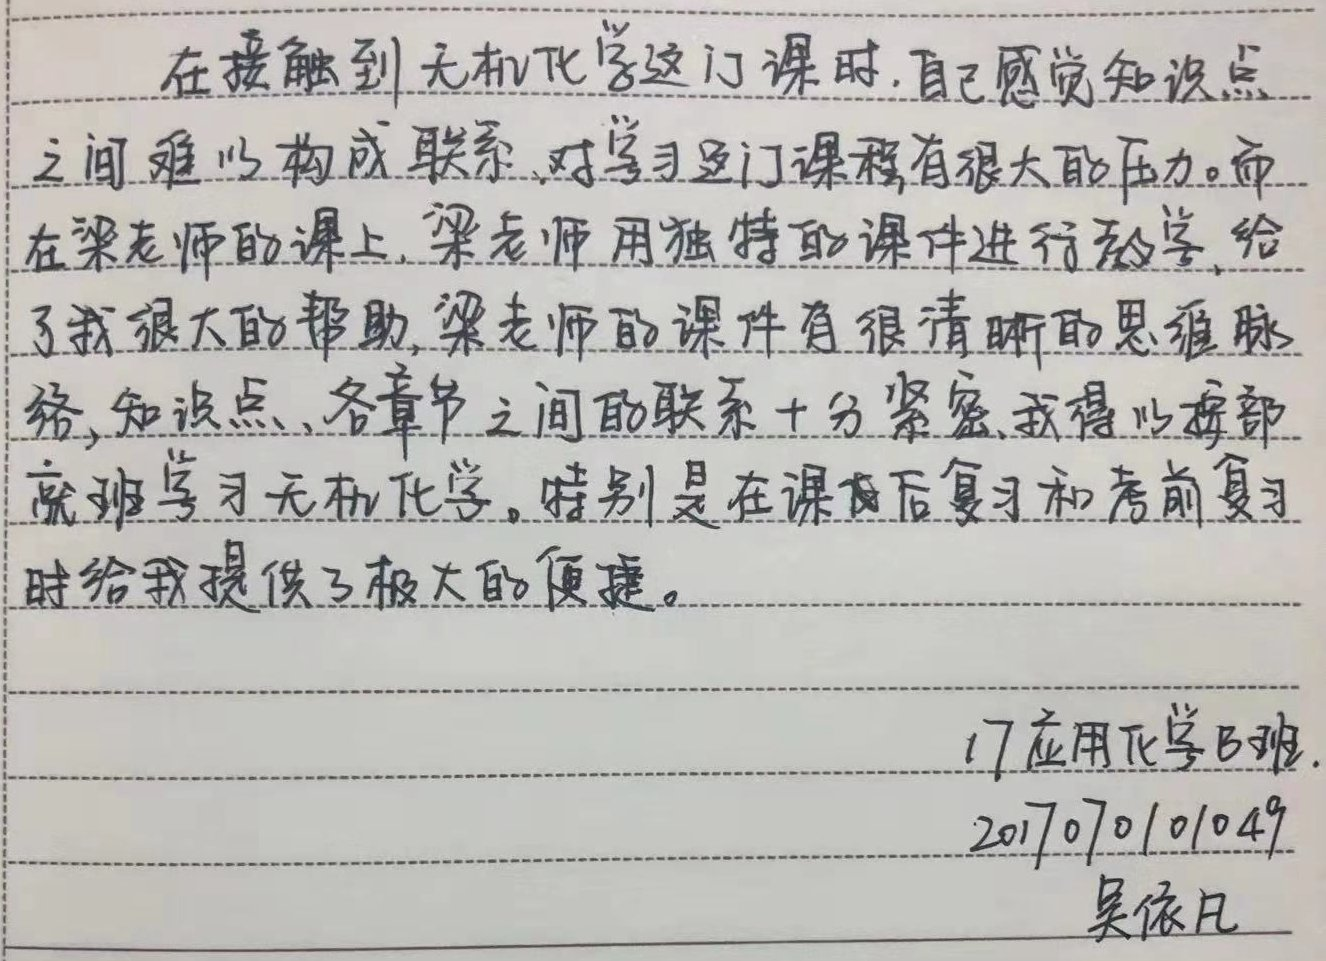 在接触到无机化学这门课时,自己感觉知识点
之间难以构成联系,对学习这门课程有很大的压力。而
在梁老师的课上,梁老师用独特的课件进行教学,给
了我很大的帮助,梁老师的课件有很清晰的思维脉
络,知识点、各章节之间的联系十分紧密,我得以按部
就班学习无机化学。特别是在课后复习和考前复习
时给我提供了极大的便捷。
17应用化学B班.
2017070101049
吴依凡